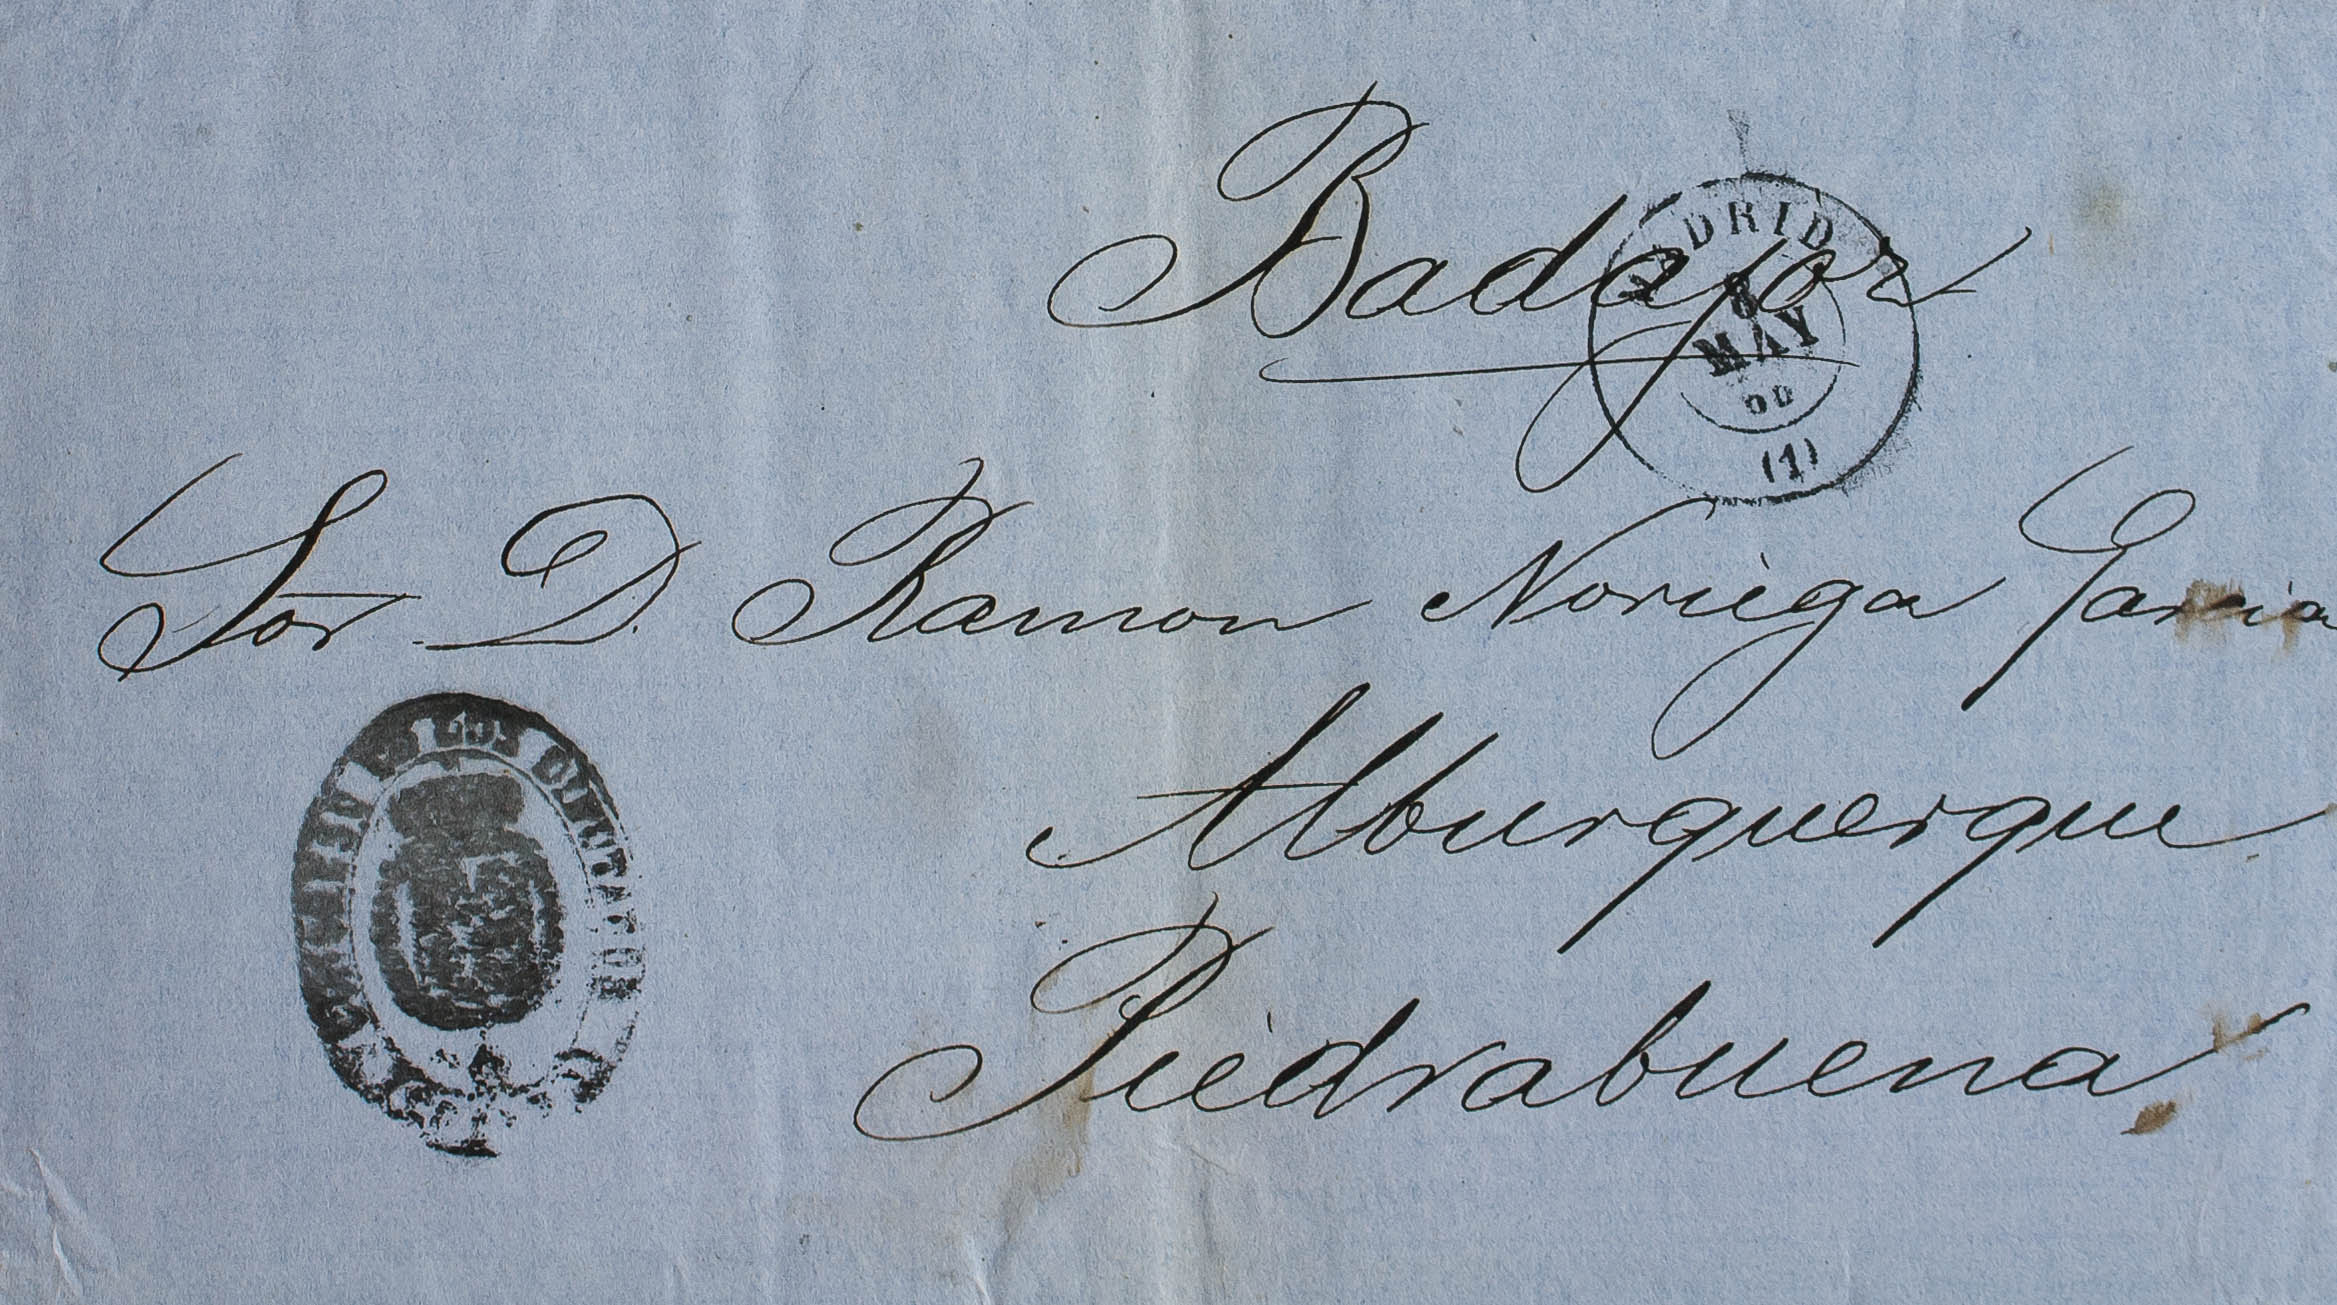 Badajoz
MADRID
8
MAY
(1)
Sōr. D. Ramon Noriega Garcia
Alburquerque
Piedrabuena
DIPUTADOS